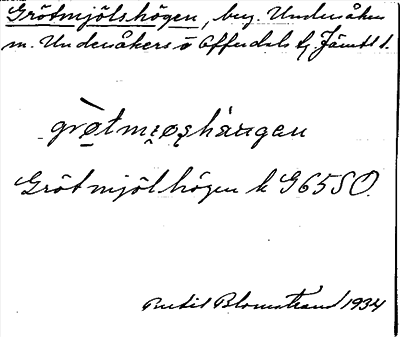 Grötmjölshögen, beg. Undersåker
m. Undersåkers o Offerdals tg. Jämtl l.
grøtmjøshäugen
Grötmjölhögen k G65SO.
Bertil Blomstrand 1934